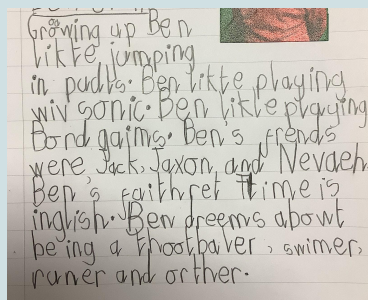 Growing up Ben
likte jumping
in pudls. Ben likte playing
wiv sonic. Ben likte playing
Bord gaims. Ben's frends
were, Jack, Jaxon, and Nevaeh
Ben s faithret time is
inglish. Ben dreems abowt
being a thootbaler, swimer,
runer and orther.